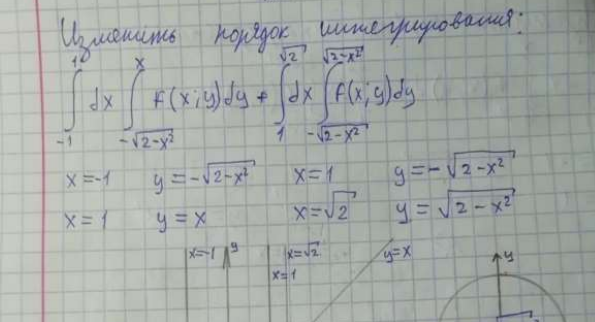 Изменить порядок интегрирования:
∫_{-1}^{1} dx ∫_{-√(2-x²)}^{x} f(x;y)dy + ∫_{1}^{√2} dx ∫_{-√(2-x²)}^{√(2-x²)} f(x;y)dy
x=-1 y=-√(2-x²) x=1 y=-√(2-x²)
x=1 y=x x=√2 y=√(2-x²)
x=-1 y x=√2 y=x y
x=1